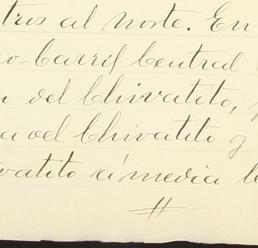 tros al norte. En
o carril Central
del Chivatito,
a del Chivatito y
vatito á media le